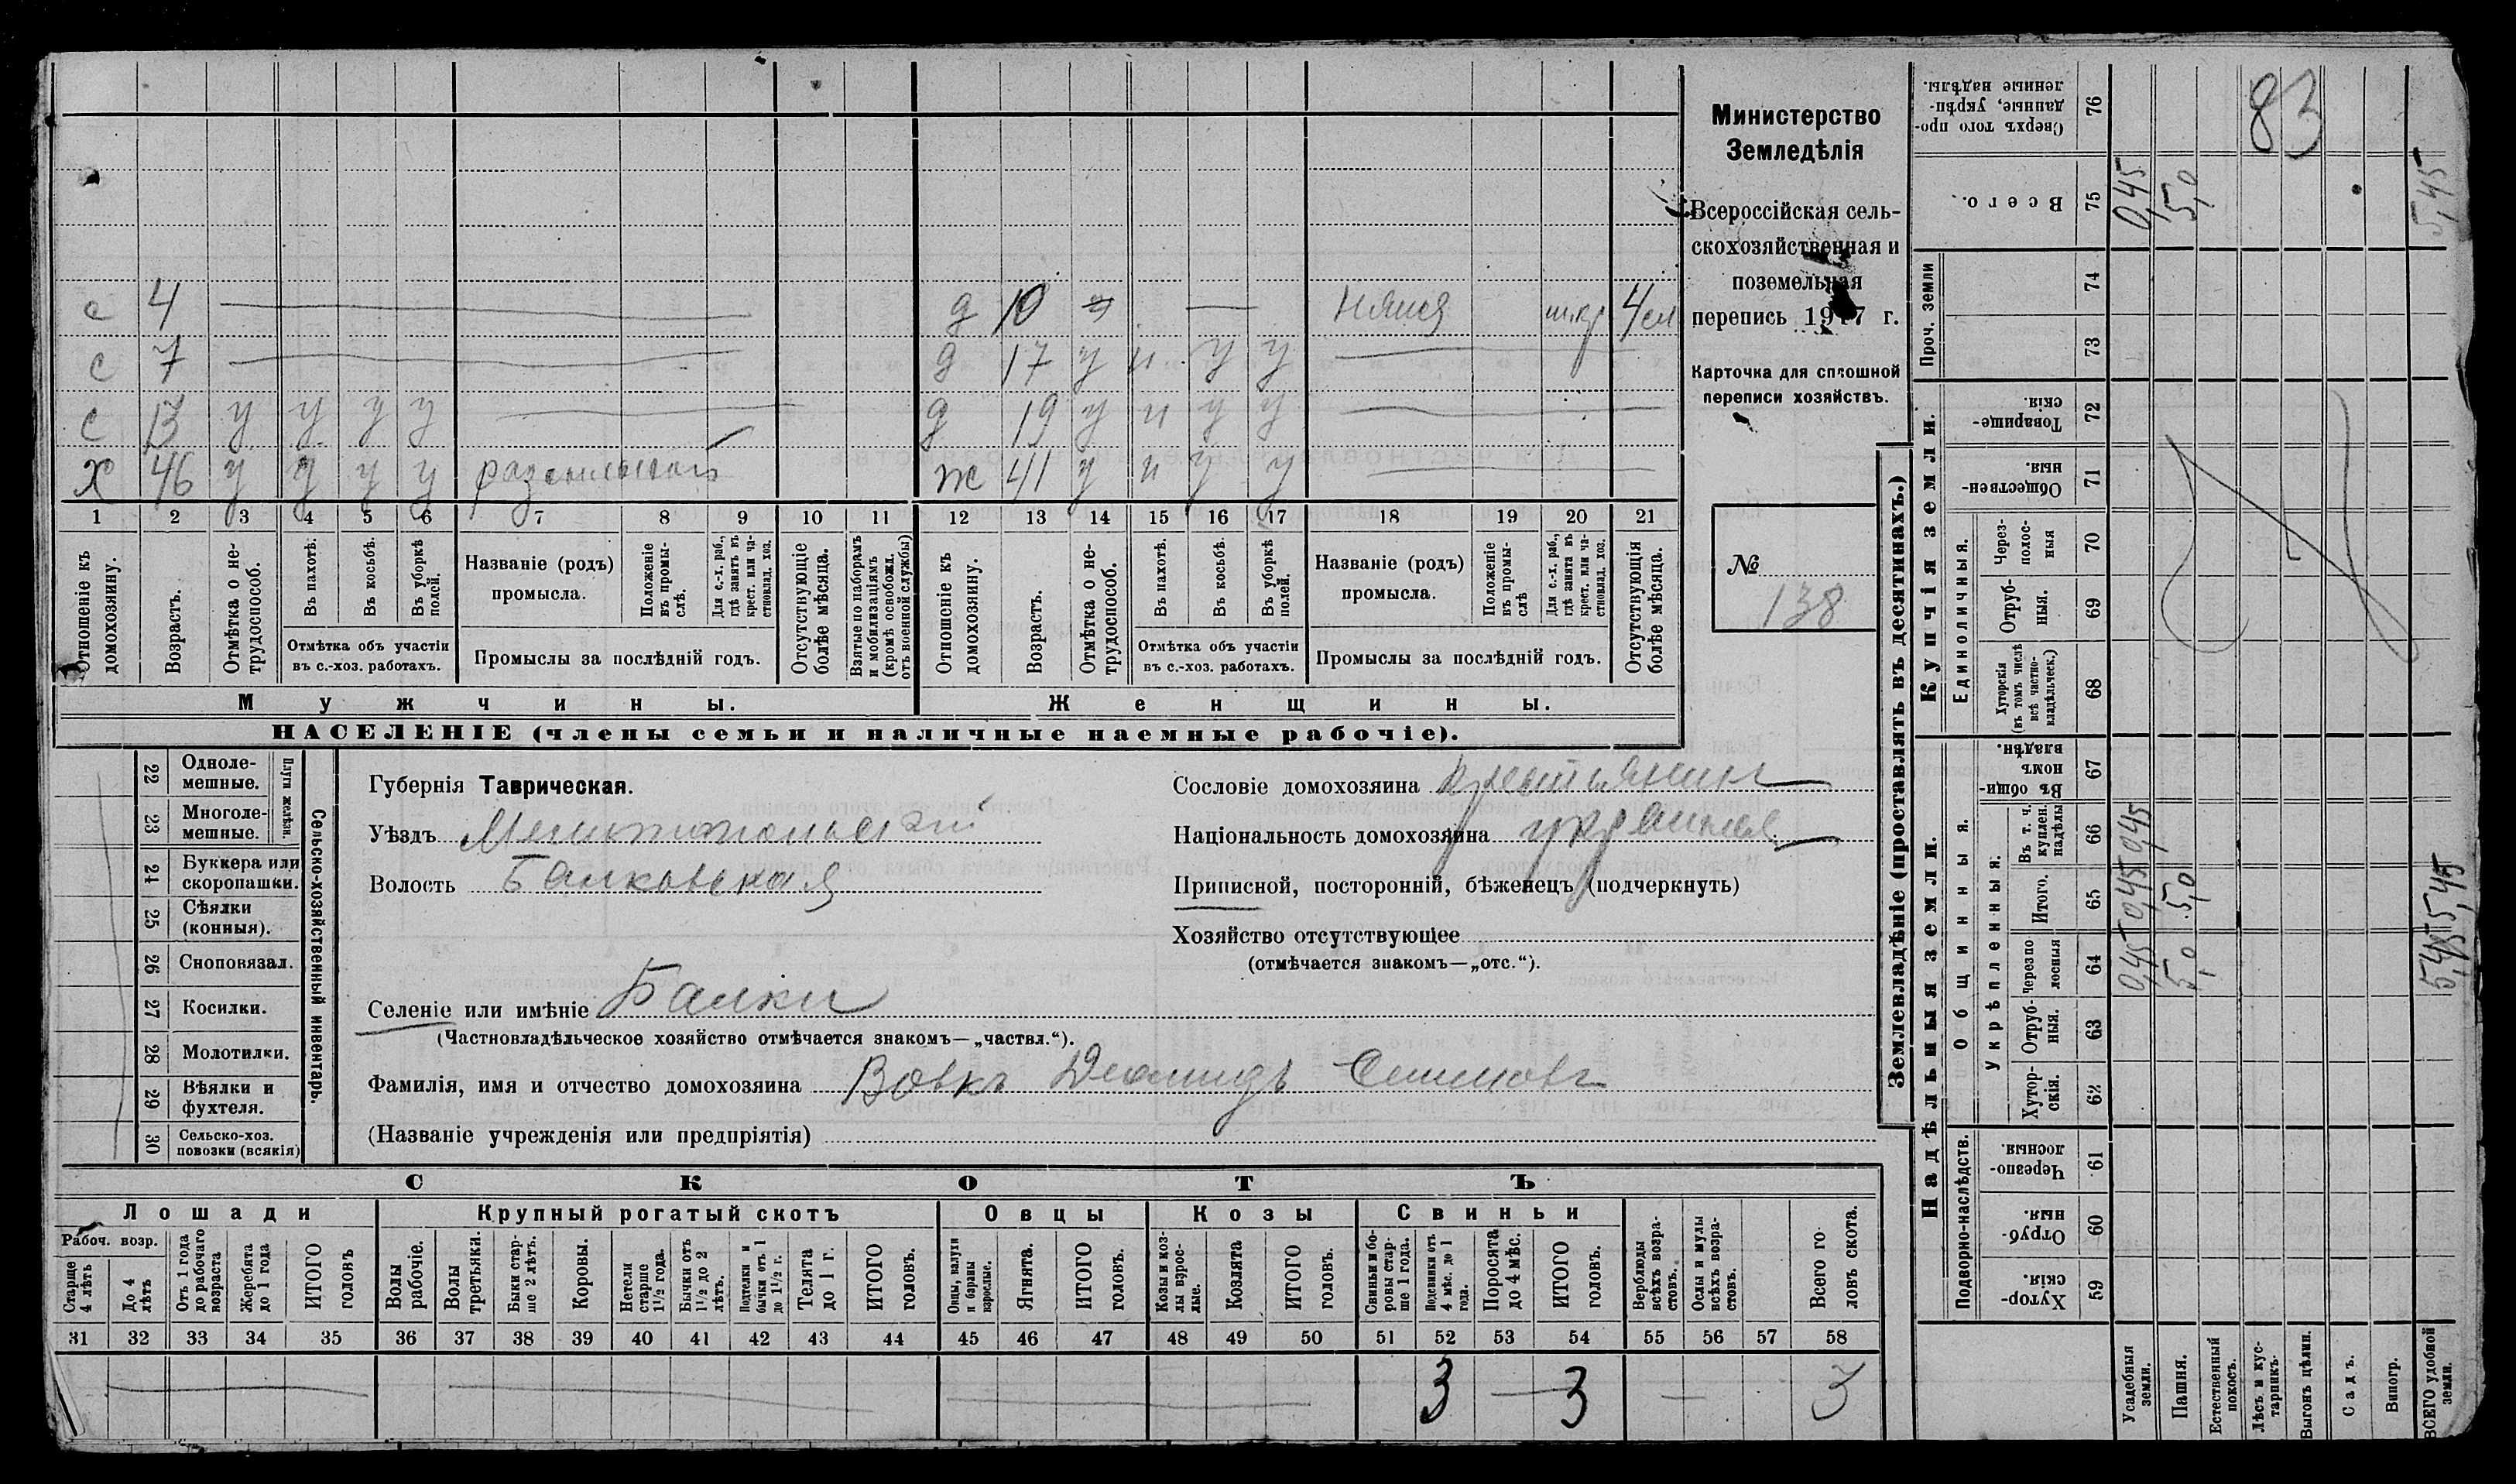 с 4 д 10 няня 4
с 7 д 17 у и у у
с 13 у у у у д 19 у и у у
х 46 у у у у ж 41 у и у у
1 2 3 4 5 6 7 8 9 10 11 12 13 14 15 16 17 18 19 20 21
Отношеніе къ домохозяину.
Возрастъ.
Отмѣтка о нетрудоспособ.
Въ пахотѣ.
Въ косьбѣ.
Въ уборкѣ полей.
Отмѣтка объ участіи
въ с.-хоз. работахъ.
Названіе (родъ)
промысла.
Положеніе въ промыслѣ.
Для с.-х. раб., гдѣ занятъ въ крест. или частновлад. хоз.
Промыслы за послѣдній годъ.
Отсутствующіе болѣе мѣсяца.
Взятые по наборамъ и мобилизаціямъ (кромѣ освобожд. отъ военной службы)
Отношеніе къ домохозяину.
Возрастъ.
Отмѣтка о нетрудоспособ.
Въ пахотѣ.
Въ косьбѣ.
Въ уборкѣ полей.
Отмѣтка объ участіи
въ с.-хоз. работахъ.
Названіе (родъ)
промысла.
Положеніе въ промыслѣ
Для с.-х. раб., гдѣ занята въ крест. или частновлад. хоз.
Промыслы за послѣдній годъ.
Отсутствующія болѣе мѣсяца.
Мужчины. Женщины.
НАСЕЛЕНІЕ (члены семьи и наличные наемные рабочіе).
Министерство
Земледѣлія
Всероссійская сель-
скохозяйственная и
поземельная
перепись 1917 г.
Карточка для сплошной
переписи хозяйствъ.
№
138
22 Однолемешные.
23 Многолемешные.
Плуги желѣзн.
24 Буккера или скоропашки.
25 Сѣялки (конныя).
26 Сноповязал.
27 Косилки.
28 Молотилки.
29 Вѣялки и фухтеля.
30 Сельско-хоз. повозки (всякія)
Сельско-хозяйственный инвентарь.
Губернія Таврическая.
Уѣздъ Мелитопольский
Волость Балковская
Сословіе домохозяина крестьянин
Національность домохозяина
Приписной, посторонній, бѣженецъ (подчеркнуть)
Хозяйство отсутствующее
(отмѣчается знакомъ—„отс.“).
Селеніе или имѣніе Балки
(Частновладѣльческое хозяйство отмѣчается знакомъ—„частвл.“).
Фамилія, имя и отчество домохозяина Вовкъ Диомидъ
(Названіе учрежденія или предпріятія)
СКОТЪ
Лошади Крупный рогатый скотъ Овцы Козы Свиньи
Рабоч. возр.
Старше 4 лѣтъ
До 4 лѣтъ
Отъ 1 года до рабочаго возраста
Жеребята до 1 года
ИТОГО головъ
Волы рабочіе.
Волы третьяки.
Быки старше 2 лѣтъ.
Коровы.
Нетели старше 1½ года.
Бычки отъ 1½ до 2 лѣтъ.
Подтелки и бычки отъ 1 до 1½ г.
Телята до 1 г.
ИТОГО головъ.
Овцы, валухи и бараны взрослые.
Ягнята.
ИТОГО головъ.
Козы и козлы взрослые.
Козлята
ИТОГО головъ.
Свиньи и боровы старше 1 года.
Подсвинки отъ 4 мѣс. до 1 года.
Поросята до 4 мѣс.
ИТОГО головъ.
Верблюды всѣхъ возрастовъ.
Ослы и мулы всѣхъ возрастовъ.
Всего головъ скота.
31 32 33 34 35 36 37 38 39 40 41 42 43 44 45 46 47 48 49 50 51 52 53 54 55 56 57 58
3 3 3
Землевладѣніе (проставлять въ десятинахъ.)
Купчія земли.
Надѣльныя земли.
Сверхъ того проданные, укрѣпленные надѣлы. 76 83
Всего. 75 0,45 5,0 5,45
Проч. земли 74
73
Товарищескія. 72
Общественныя. 71
Единоличныя.
Черезполосныя 70
Отрубныя. 69
Хуторскія (въ томъ числѣ всѣ частновладѣльческ.) 68
Общинныя.
Въ общинномъ владѣн. 67
Укрѣпленныя:
Въ т. ч. куплен. надѣлы 66 0,45 5,45
Итого. 65 0,45 5,0 5,45
Черезполосныя 64 0,45 5,0 5,45
Отрубныя. 63
Хуторскія. 62
Подворно-наслѣдств.
Черезполосныя. 61
Отрубныя. 60
Хуторскія. 59
Усадебныя земли.
Пашня.
Естественный покосъ.
Лѣсъ и кустарникъ.
Выгонъ цѣлин.
Садъ.
Виногр.
ВСЕГО удобной земли.